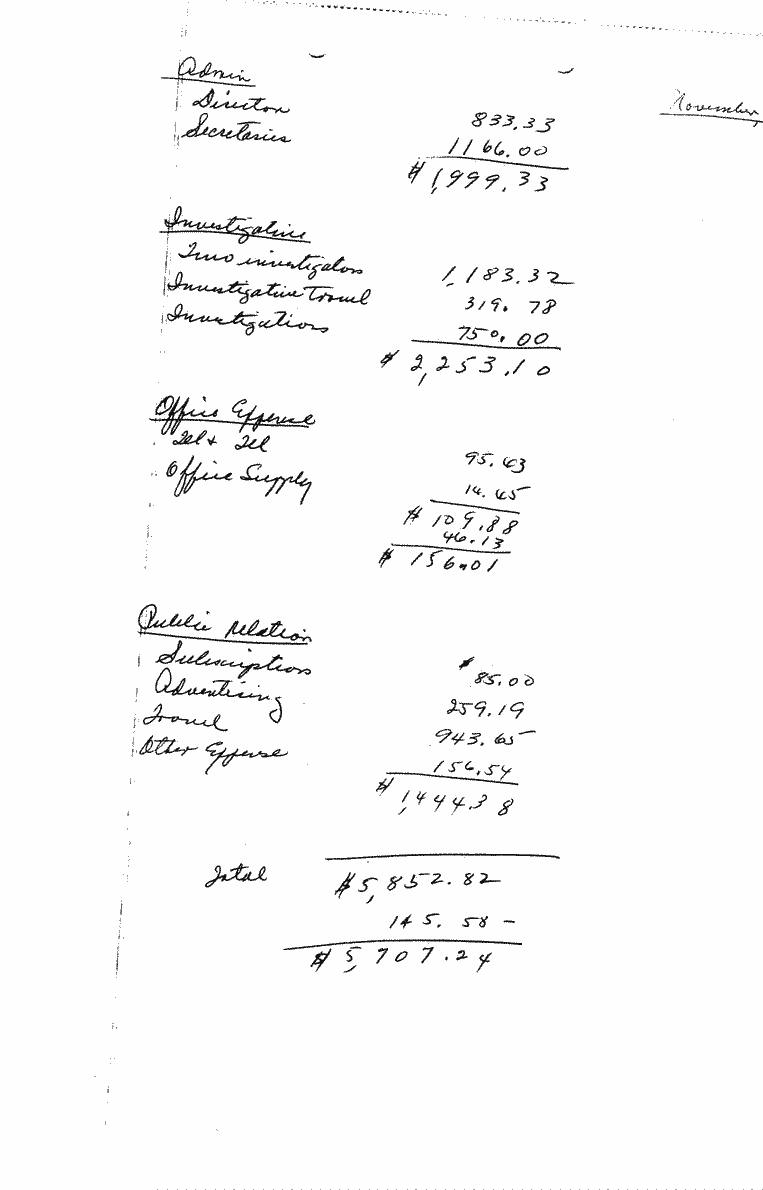 November,
Admin
Director 833.33
Secretaries 1166.00
$1,999.33
Investigative
Two investigators 1,183.32
Investigative Travel 319.78
Investigations 750.00
$2,253.10
Office Expense
Tel + Tel 95.43
Office Supply 14.45
$109.88
46.13
$156.01
Public relation
Subscriptions $85.00
Advertising 259.19
Travel 943.65
Other Expense 156.54
$1,444.38
Total $5,852.82
145.58 -
$5,707.24